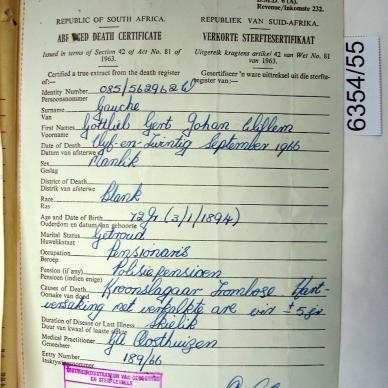 B.M.D. 6 (A).
Revenue/Inkomste 232.
REPUBLIC OF SOUTH AFRICA.
REPUBLIEK VAN SUID-AFRIKA.
DEATH CERTIFICATE
VERKORTE STERFTESERTIFIKAAT
Issued in terms of Section 42 of Act No. 81 of 1963.
Uitgereik kragtens artikel 42 van Wet No. 81 van 1963.
Certified a true extract from the death register of:—
Gesertifiseer 'n ware uittreksel uit die sterfteregister van:—
Identity Number
Persoonsnommer
Surname Gouche
Van
First Names Gottlieb Gert Johan Willem
Voorname
Date of Death Vyf-en-Twintig September 1966
Datum van afsterwe
Sex Manlik
Geslag
District of Death
Distrik van afsterwe
Race Blank
Ras
Age and Date of Birth 72 Jr (3/1/1894)
Ouderdom en datum van geboorte
Marital Status Getroud
Huwelikstaat
Occupation Pensionaris
Beroep
Pension (if any) Polisiepensioen
Pensioen (indien enige)
Causes of Death Kroonslagaar Trombose Hart-
Oorsake van dood
versaking met verkalkte are vir ± 5 jr
Duration of Disease or Last Illness Skielik
Duur van kwaal of laaste siekte
Medical Practitioner Oosthuizen
Geneesheer
Entry Number 189/66
Inskrywingsnommer
6354/55